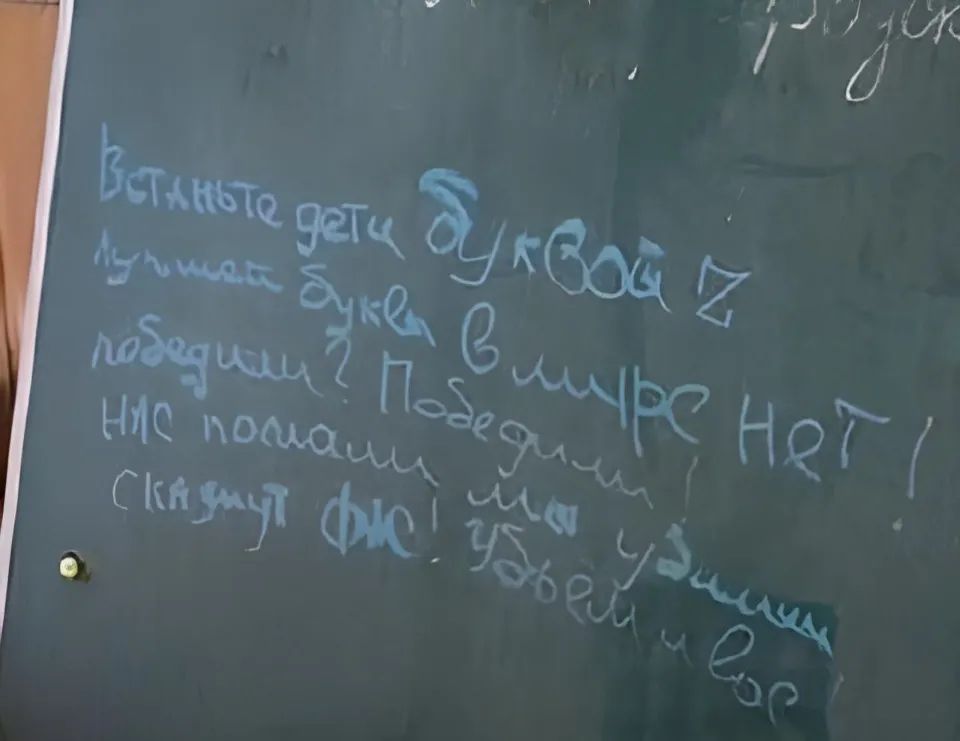 Встаньте дети буквой Z
Лучшей буквы в мире нет!
победили? Победили!
нас помали! мы убили
скажут фас! убьём и вор